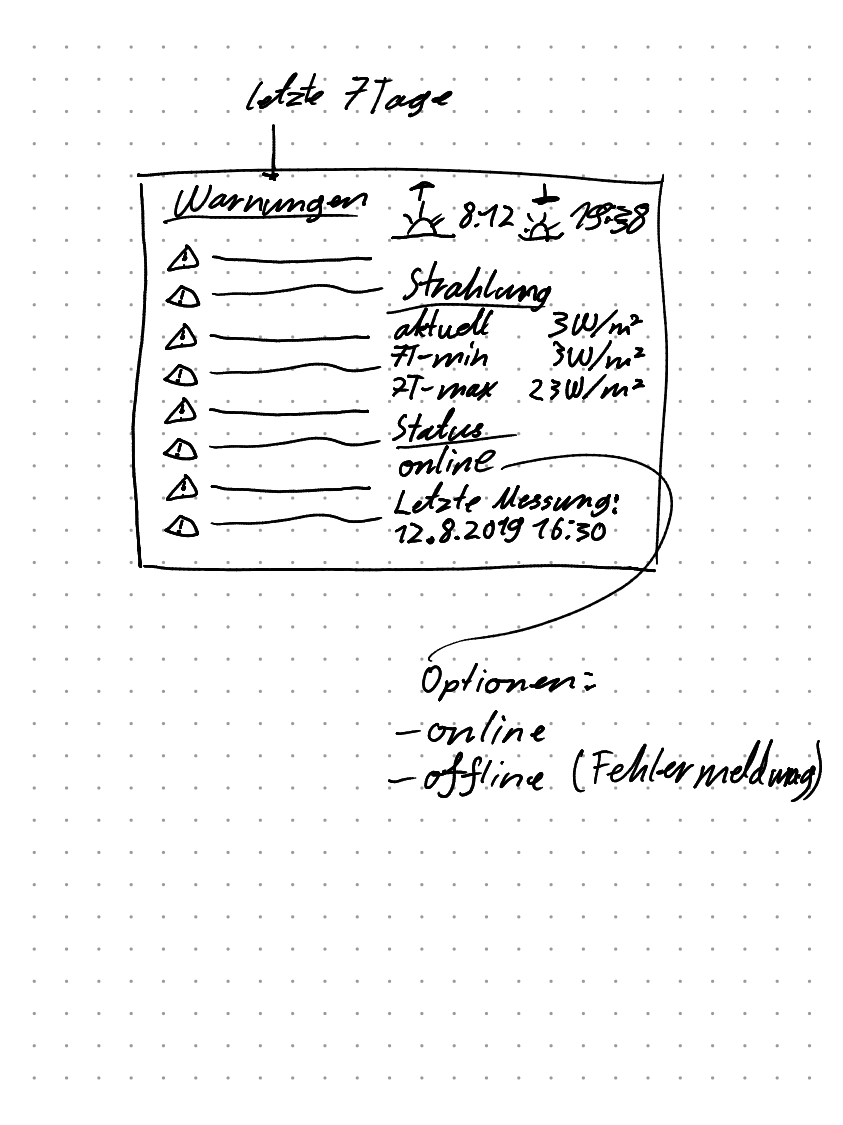 Letzte 7 Tage
Warnungen
8:12 19:38
Strahlung
aktuell 3W/m²
7T-min 3W/m²
7T-max 23W/m²
Status
online
Letzte Messung:
12.8.2019 16:30
Optionen:
- online
- offline (Fehlermeldung)